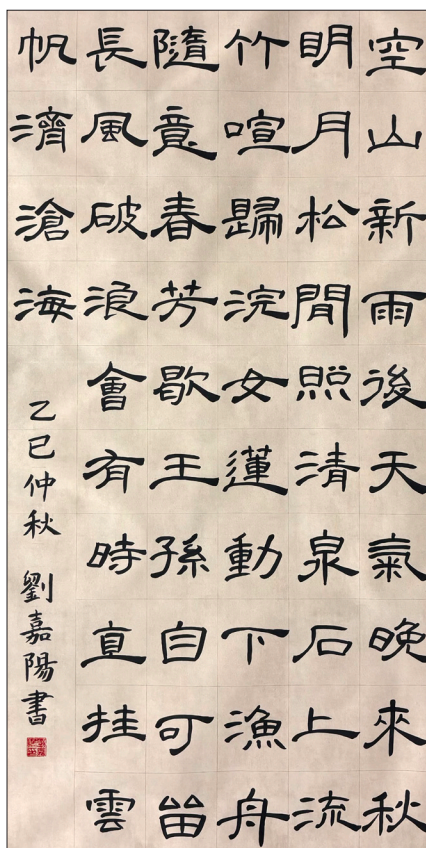 空山新雨後天氣晚來秋
明月松閒照清泉石上流
竹喧歸浣女蓮動下漁舟
隨意春芳歇王孫自可畱
長風破浪會有時直挂雲
帆濟滄海
乙巳仲秋 劉嘉陽書